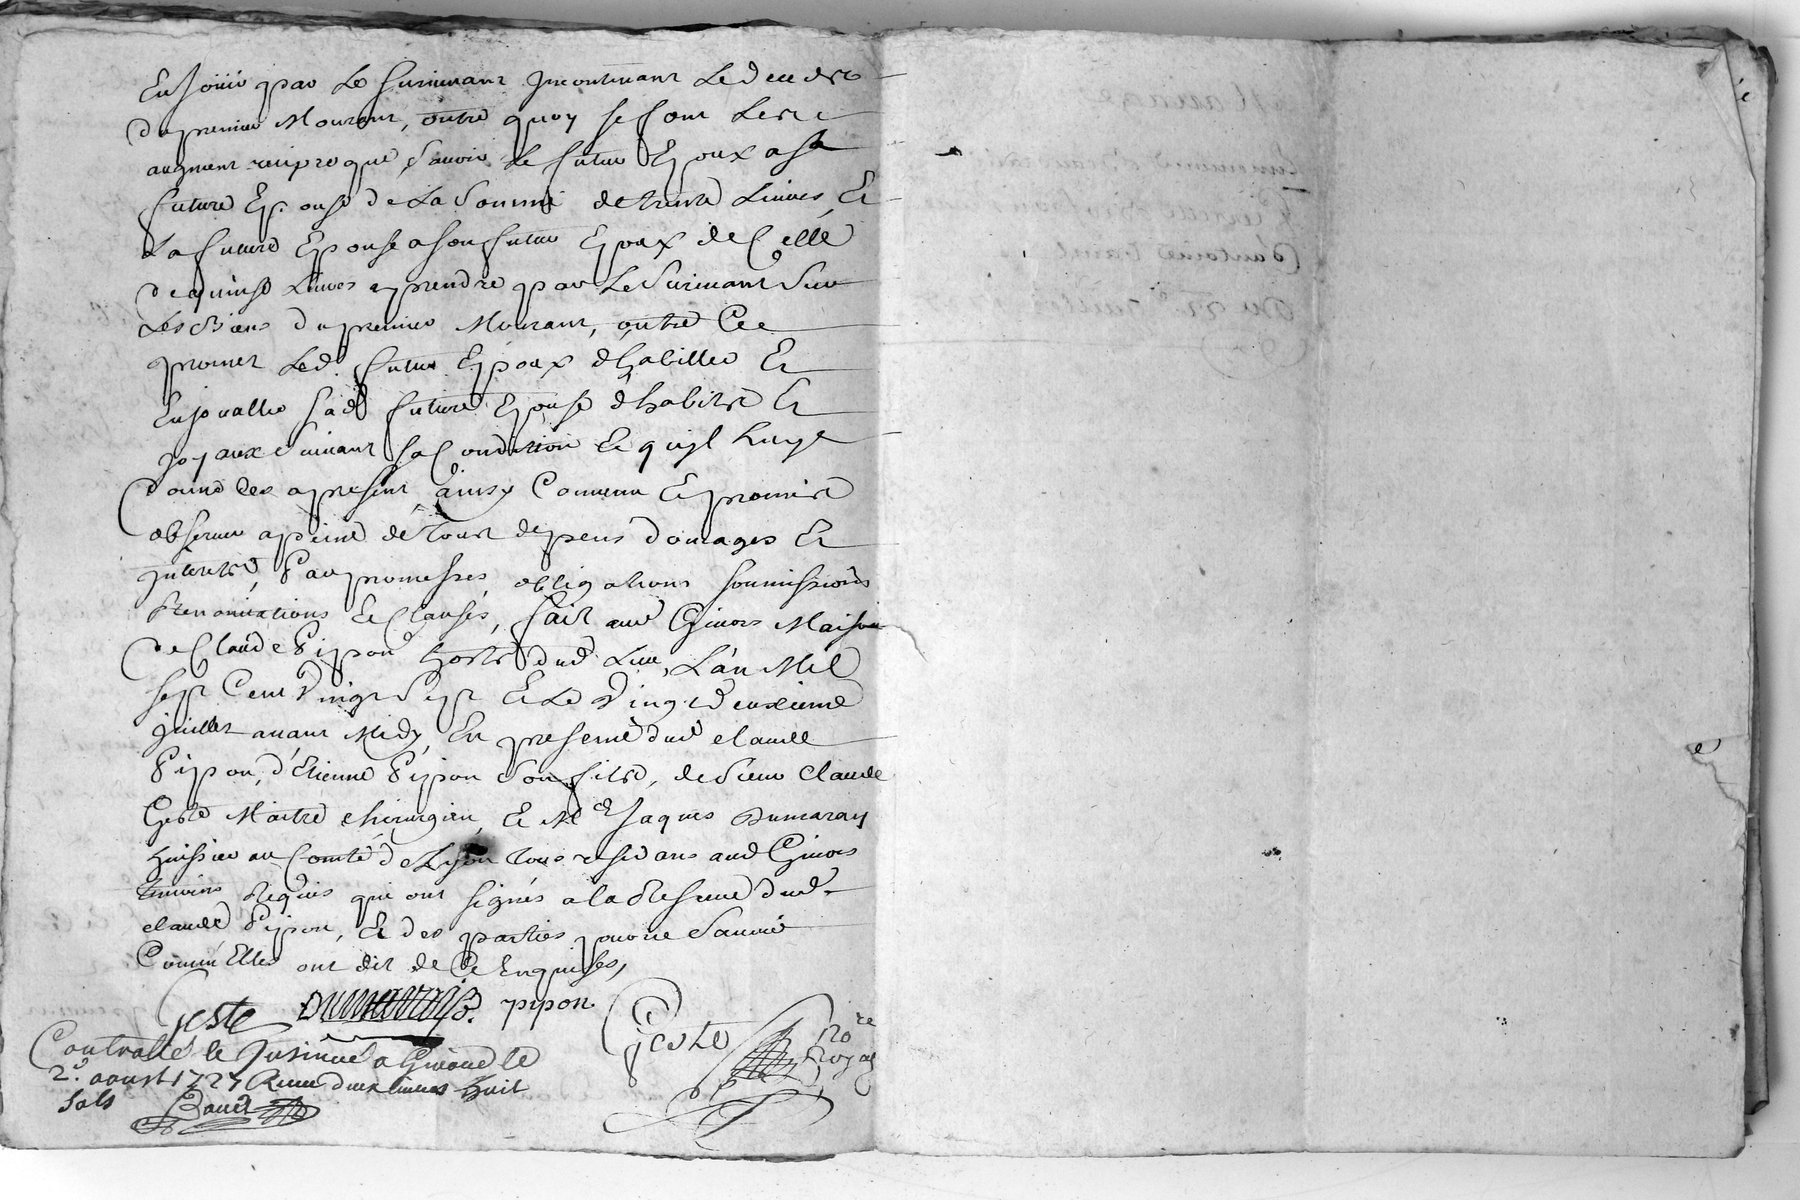 En Joüir par Le Survivant Incontinant Le deceds
du premier Mourant, outre quoy se font Lesd
augment reciproque, Scavoir Le futur Epoux a sa
future Epouse de La Somme de trente Livres, Et
La future Epouse a son futur Epoux de Celle
de quinse Livres a prendre par Le Survivant Sur
Les Biens du premier Mourant, outre Ce
promet Led. futur Epoux d'habiller Et
Enjoualler Sad future Epouse d'habits Et
Joyaux Suivant sa Condition Et qu'il Luy
donne des apresent, ainsy Convenu Et promis
observer a peine de tous depens domages Et
Interets, Par promesses obligations soumissions
Renonciations Et Clauses, fait aud Givors Maison
de Claude Pipon hoste dud Lieu, L'an Mil
sept Cent Vingt Sept Et Le Vingt deuxieme
Juillet avant Midy, En presence dud Claude
Pipon, d'Etienne Pipon Son fils, de Sieur Claude
Geste Maitre Chirurgien, Et Me Jaques Dumaray
huissier au Comté de Lyon tous residans aud Givors
temoins Requis qui ont signés a la Reserve dud
Claude Pipon, Et des parties pour ne Scavoir
Comm'Elles ont dit de Ce Enquises,
Geste Dumaray pipon Geste Nore Royal
Controllé et Insinué a Givors le
2e aoust 1727 Receu deux livres huit
sols